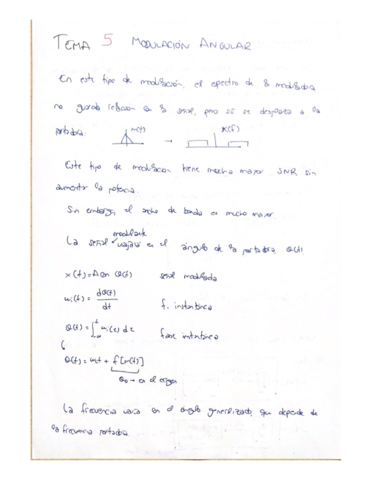 TEMA 5 MODULACIÓN ANGULAR
En este tipo de modulación, el espectro de la moduladora
no guarda relación con la señal, pero sí se desplaza a la
portadora.
m(t) → X(f)
Este tipo de modulacion tiene mucho mejor SNR sin
aumentar la potencia.
Sin embargo, el ancho de banda es mucho mayor.
modulante
La señal viajará en el ángulo de la portadora, θ(t)
x(t) = A cos θ(t) señal modulada
ωi(t) = dθ(t)/dt f. instantánea
θ(t) = ∫ ωi(τ) dτ fase instantánea
θ(t) = ωct + f[m(t)]
θ0 → en el origen
La frecuencia varia en el ángulo generalizado, que depende de
la frecuencia portadora.